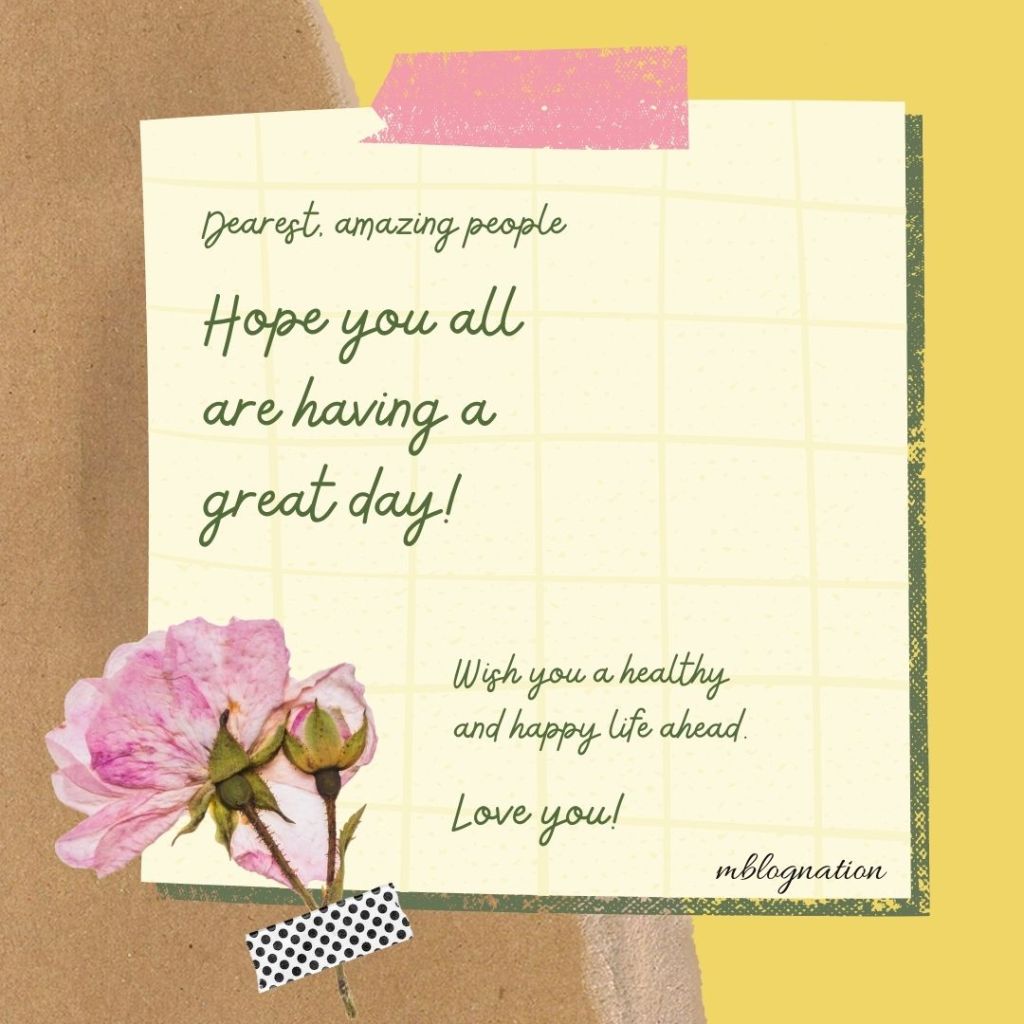 Dearest, amazing people
Hope you all
are having a
great day!
Wish you a healthy
and happy life ahead.
Love you!
mblognation